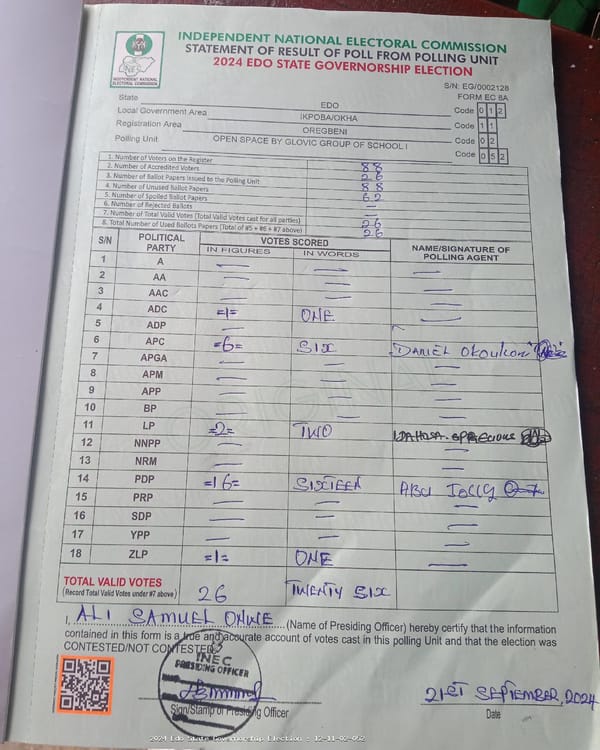 INDEPENDENT NATIONAL ELECTORAL COMMISSION
STATEMENT OF RESULT OF POLL FROM POLLING UNIT
2024 EDO STATE GOVERNORSHIP ELECTION
INDEPENDENT NATIONAL ELECTORAL COMMISSION
S/N: EG/0002128
FORM EC 8A
State EDO Code 0 1 2
Local Government Area IKPOBA/OKHA Code 1 1
Registration Area OREGBENI Code 0 2
Polling Unit OPEN SPACE BY GLOVIC GROUP OF SCHOOL I Code 0 5 2
1. Number of Voters on the Register 88
2. Number of Accredited Voters 26
3. Number of Ballot Papers issued to the Polling Unit 88
4. Number of Unused Ballot Papers 62
5. Number of Spoiled Ballot Papers —
6. Number of Rejected Ballots —
7. Number of Total Valid Votes (Total Valid Votes cast for all parties) 26
8. Total Number of Used Ballots Papers (Total of #5 + #6 + #7 above) 26
S/N POLITICAL PARTY VOTES SCORED NAME/SIGNATURE OF POLLING AGENT
IN FIGURES IN WORDS
1 A — — —
2 AA — — —
3 AAC — — —
4 ADC =1= ONE —
5 ADP — —
6 APC =6= SIX DANIEL
7 APGA — — —
8 APM — — —
9 APP — — —
10 BP — — —
11 LP =2= TWO
12 NNPP — — —
13 NRM — — —
14 PDP =16= SIXTEEN ABU JOLLY
15 PRP — — —
16 SDP — — —
17 YPP — — —
18 ZLP =1= ONE —
TOTAL VALID VOTES 26 TWENTY SIX
(Record Total Valid Votes under #7 above)
I, ALI SAMUEL ONWE (Name of Presiding Officer) hereby certify that the information
contained in this form is a true and accurate account of votes cast in this polling Unit and that the election was
CONTESTED/NOT CONTESTED
INEC
PRESIDING OFFICER
21ST SEPTEMBER, 2024
Sign/Stamp of Presiding Officer Date
2024 Edo State Governorship Election : 12-11-02-052